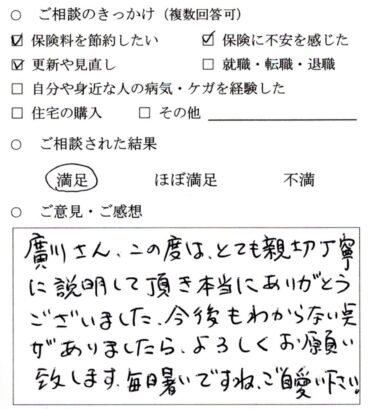 ○ ご相談のきっかけ（複数回答可）
☑ 保険料を節約したい ☑ 保険に不安を感じた
☑ 更新や見直し □ 就職・転職・退職
□ 自分や身近な人の病気・ケガを経験した
□ 住宅の購入 □ その他
○ ご相談された結果
満足 ほぼ満足 不満
○ ご意見・ご感想
廣川さん、この度は、とても親切丁寧
に説明して頂き本当にありがとう
ございました、今後もわからない点
がありましたら、よろしくお願い
致します。毎日暑いですね、ご自愛下さい。